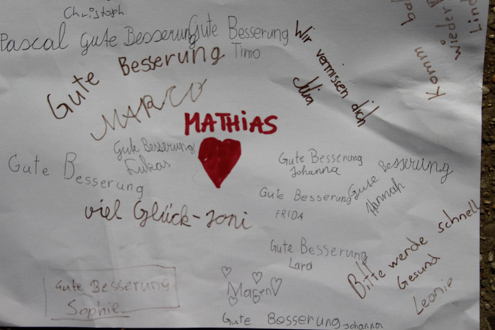 Christoph
Pascal Gute Besserung
Gute Besserung
Timo
Wir vermissen dich
Komm
Gute Besserung
MARCO
MATHIAS
Gute Besserung
Lukas
Gute Besserung
Gute Besserung
Johanna
Gute Besserung
Hannah
Gute Besserung
FRIDA
viel Glück-Joni
Gute Besserung
Lara
Bitte werde schnell
Gesund
Leonie
Gute Besserung
Sophie
Gute Besserung Johanna